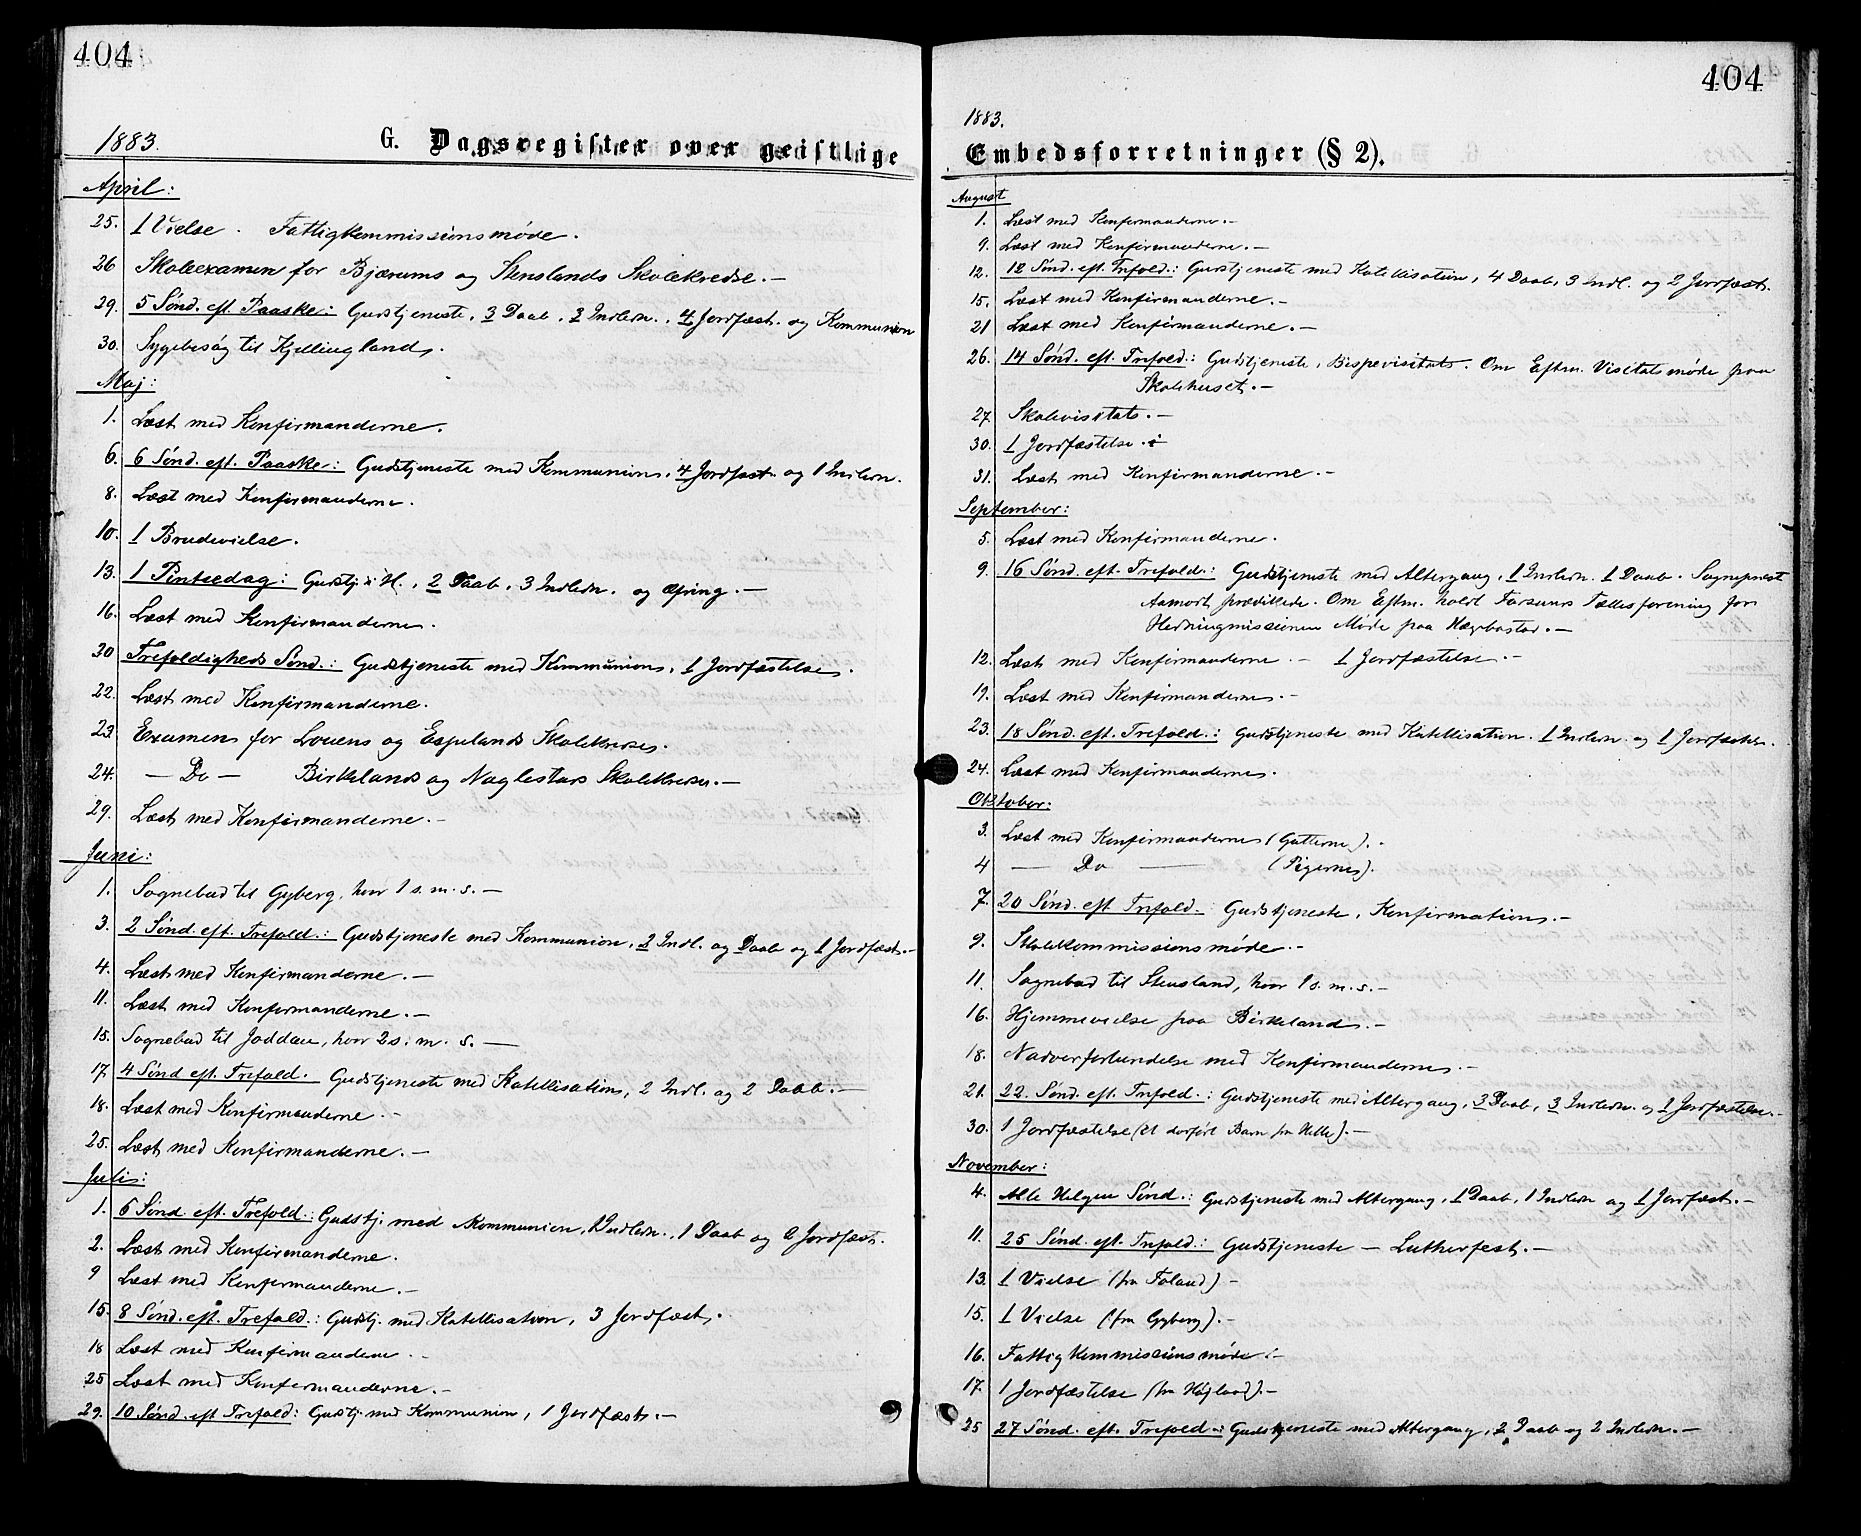 404
1883.
G. Dagsregister over geistlige
April:
25. 1 Vielse. Fattigkommissionsmøde.
26 Skoleexamen for Bjærums og Stenslands Skolekredse.—
29. 5 Sønd. eft. Paaske: Gudstjeneste, 3 Daab, 3 Indledn., 4 Jordfæst. og Kommunion
30. Sygebesøg til Kjellingland.
Maj:
1. Læst med Konfirmanderne.
6. 6 Sønd. eft. Paaske: Gudstjeneste med Kommunion, 4 Jordfæst. og 1 Indledn.
8. Læst med Konfirmanderne.
10. 1 Brudevielse.
13. 1 Pintsedag: Gudstj. i H., 2 Daab, 3 Indledn. og Ofring.—
16. Læst med Konfirmanderne.
20 Trefoldigheds Sønd.: Gudstjeneste med Kommunion, 1 Jordfæstelse.
22. Læst med Konfirmanderne.
23. Examen for Louens og Espelands Skolekredse.
24. — Do — Birkelands og Naglestads Skolekredse.—
29. Læst med Konfirmanderne.—
Juni:
1. Sognebud til Gyberg, hvor 1 s. m. s.—
3. 2 Sønd. eft. Trefold.: Gudstjeneste med Kommunion, 2 Indl. og Daab og 1 Jordfæst.—
4. Læst med Konfirmanderne.—
11. Læst med Konfirmanderne.—
15. Sognebud til Joddan, hvor 2 s. m. s.—
17. 4 Sønd eft. Trefold. Gudstjeneste med Katekisation, 2 Indl. og 2 Daab.—
18. Læst med Konfirmanderne.—
25. Læst med Konfirmanderne.—
Juli:
1. 6 Sønd. eft. Trefold.: Gudstj. med Kommunion, Indledn., 1 Daab og 2 Jordfæst.
2. Læst med Konfirmanderne.
9 Læst med Konfirmanderne.—
15. 8 Sønd. eft. Trefold.: Gudstj. med Katekisation, 3 Jordfæst.
18 Læst med Konfirmanderne.—
25 Læst med Konfirmanderne.—
29. 10 Sønd. eft Trefold: Gudstj med Kommunion, 1 Jordfæst.—
404
1883.
Embedsforretninger (§ 2).
August
1. Læst med Konfirmanderne.—
9. Læst med Konfirmanderne.—
12. 12 Sønd. eft. Trefold.: Gudstjeneste med Katekisation, 4 Daab, 3 Indl. og 2 Jordfæst.
15. Læst med Konfirmanderne.—
21 Læst med Konfirmanderne.—
26. 14 Sønd. eft. Trefold.: Gudstjeneste, Bispevisitats. Om Eftm. Visitatsmøde paa
Skolehuset.—
27. Skolevisitats.—
30. 1 Jordfæstelse.
31. Læst med Konfirmanderne.—
September:
5. Læst med Konfirmanderne.
9. 16 Sønd. eft. Trefold.: Gudstjeneste med Altergang, 1 Indledn. 1 Daab. Sognepræst
Aamodt prædikede. Om Eftm. holdt Farsunds Fællesforening for
Hedningmissionen Møde paa Hægbostad.—
12. Læst med Konfirmanderne.— 1 Jordfæstelse.—
19. Læst med Konfirmanderne.—
23. 18 Sønd. eft. Trefold.: Gudstjeneste med Katekisation. 1 Indledn. og 1 Jordfæstelse.
24. Læst med Konfirmanderne.
Oktober:
3. Læst med Konfirmanderne (Gutterne).
4 — Do — (Pigerne).
7. 20 Sønd. eft. Trefold.: Gudstjeneste, Konfirmation.—
9. Skolekommissionsmøde.—
11. Sognebud til Stensland, hvor 1 s. m. s.—
16. Hjemmevielse paa Birkeland.—
18. Nadverforbindelse med Konfirmanderne.—
21. 22. Sønd. eft. Trefold.: Gudstjeneste med Altergang, 3 Daab, 3 Indledn. og 1 Jordfæstelse.—
30. 1 Jordfæstelse (et dødfødt Barn fra Helle).—
November:
4. Alle Helgen Sønd.: Gudstjeneste med Altergang, 1 Daab, 1 Indledn og 1 Jordfæst.—
11. 25 Sønd. eft. Trefold.: Gudstjeneste — Lutherfest.—
13. 1 Vielse (fra Foland)—
15. 1 Vielse (fra Gyberg).—
16. Fattigkommissionsmøde.—
17. 1 Jordfæstelse (fra Højland).—
25 27 Sønd. eft. Trefold.: Gudstjeneste med Altergang, 2 Daab og 2 Indledn.—